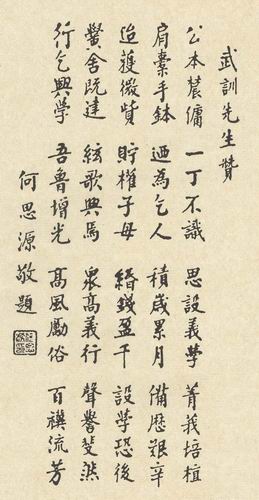 武訓先生贊
公本農傭 一丁不識 思設義學 菁莪培植
肩橐手鉢 迺為乞人 積歲累月 備歷艱辛
迨獲微貲 貯權子母 緡錢盈千 設學恐後
黌舍既建 絃歌興焉 衆高義行 聲譽斐然
行乞興學 吾魯增光 高風勵俗 百禩流芳
何思源敬題